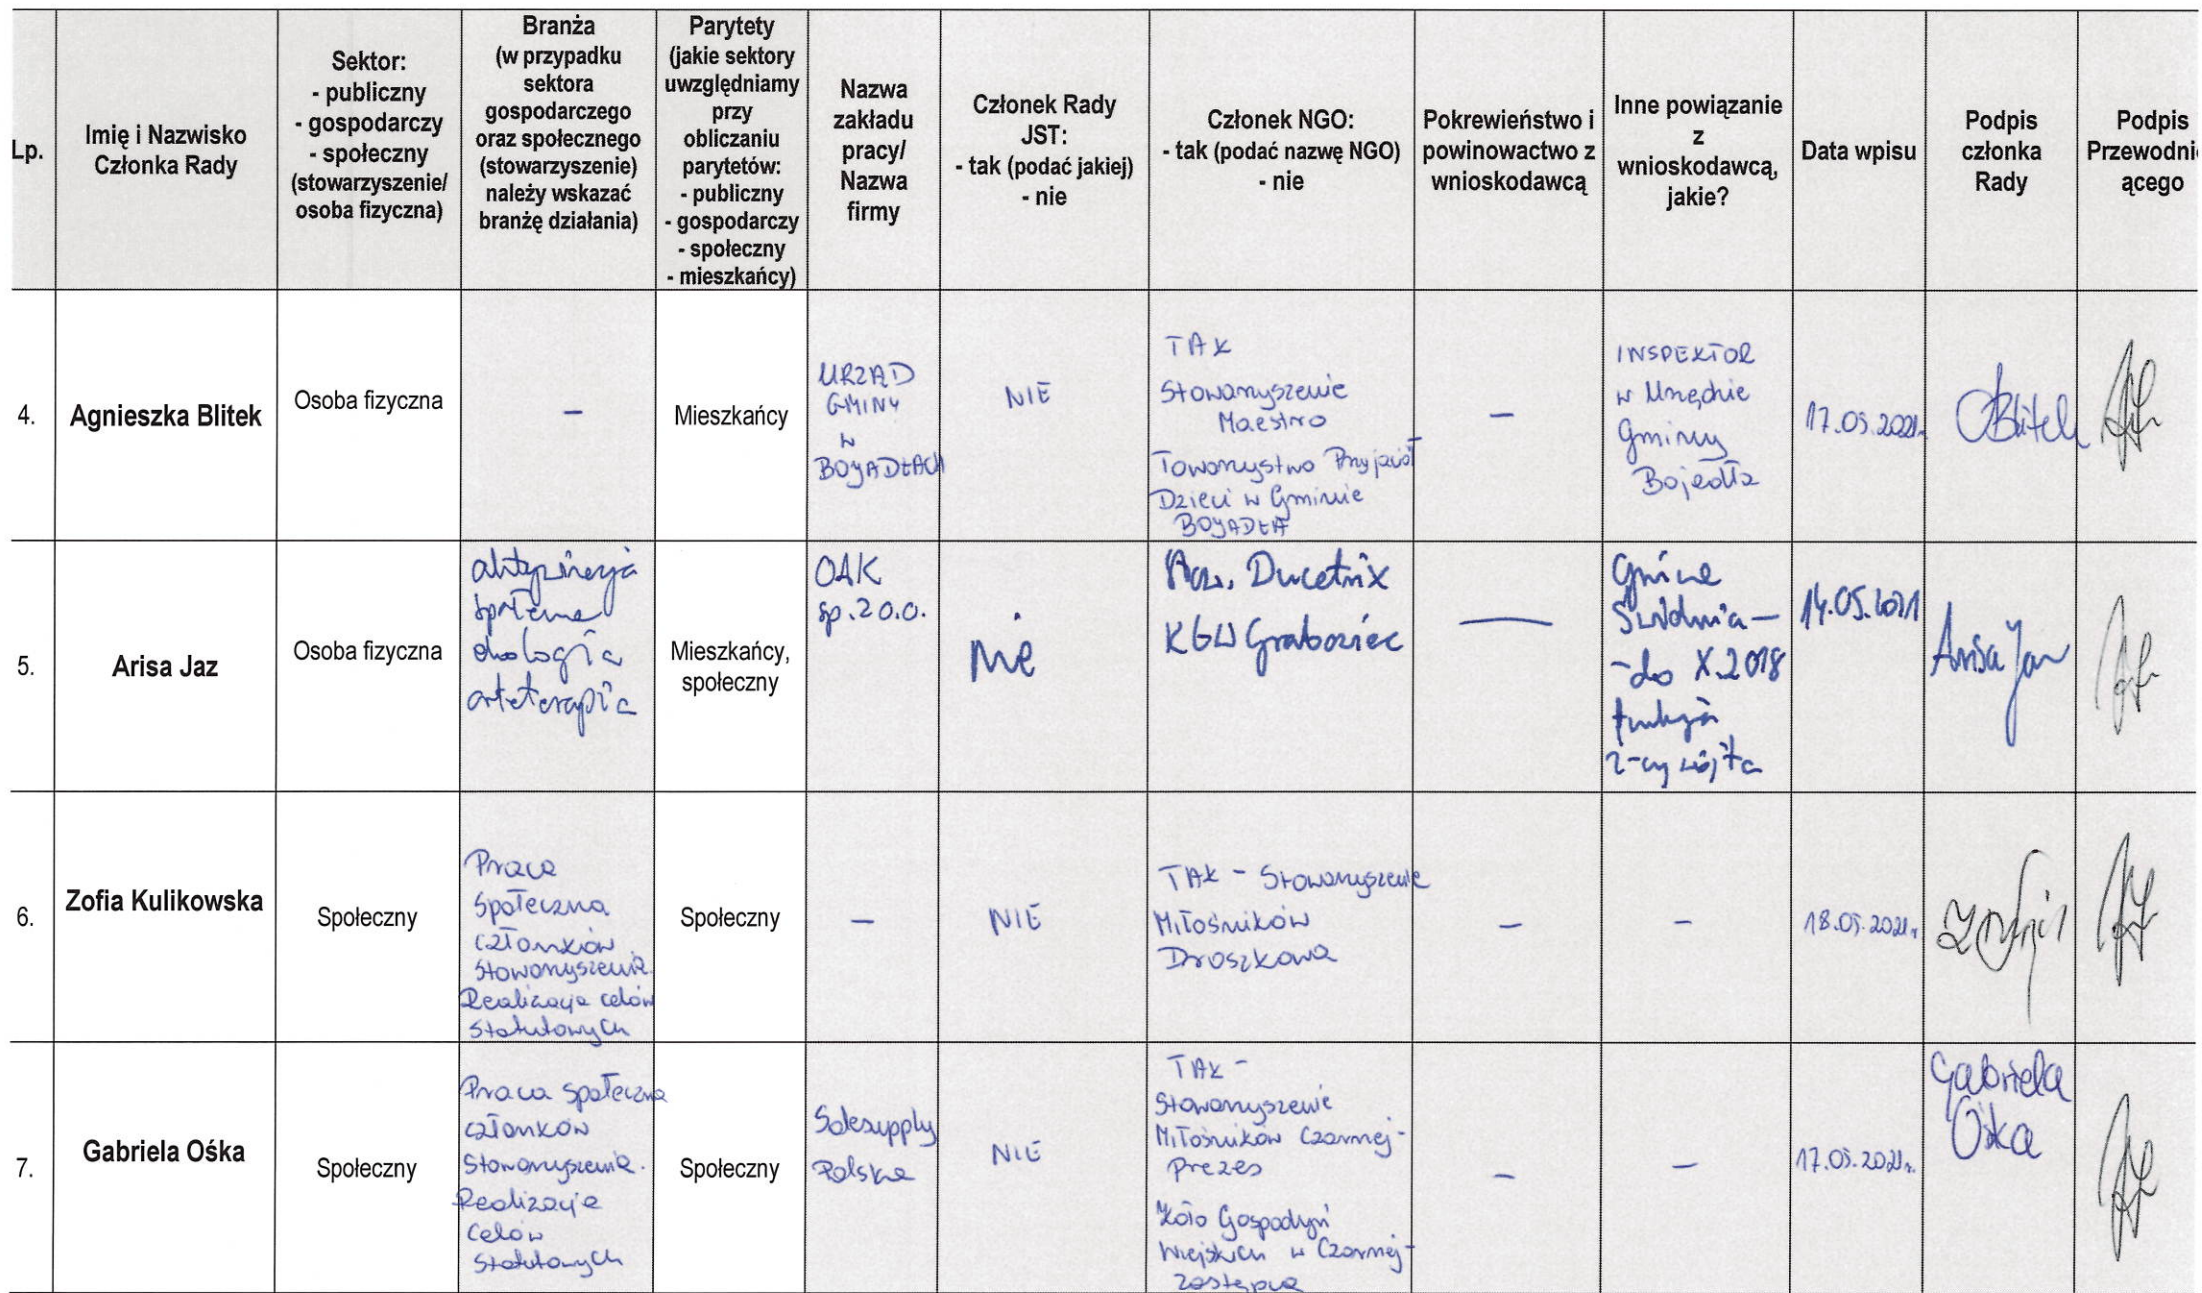 Lp.
Imię i Nazwisko
Członka Rady
Sektor:
- publiczny
- gospodarczy
- społeczny
(stowarzyszenie/
osoba fizyczna)
Branża
(w przypadku
sektora
gospodarczego
oraz społecznego
(stowarzyszenie)
należy wskazać
branżę działania)
Parytety
(jakie sektory
uwzględniamy
przy
obliczaniu
parytetów:
- publiczny
- gospodarczy
- społeczny
- mieszkańcy)
Nazwa
zakładu
pracy/
Nazwa
firmy
Członek Rady
JST:
- tak (podać jakiej)
- nie
Członek NGO:
- tak (podać nazwę NGO)
- nie
Pokrewieństwo i
powinowactwo z
wnioskodawcą
Inne powiązanie
z
wnioskodawcą,
jakie?
Data wpisu
Podpis
członka
Rady
Podpis
Przewodni
ącego
4.
Agnieszka Blitek
Osoba fizyczna
–
Mieszkańcy
URZĄD
GMINY
W
BOJADŁACH
NIE
TAK
Stowarzyszenie
Maestro
Towarzystwo Przyjaciół
Dzieci w Gminie
BOJADŁA
–
INSPEKTOR
w Urzędzie
Gminy
Bojadła
17.05.2021r.
Blitek
5.
Arisa Jaz
Osoba fizyczna
społeczna
ekologia
arteterapia
Mieszkańcy,
społeczny
OAK
sp. z o.o.
nie
Ducetrix
KGW Graboziec
—
Gmina
Świdnica –
- do X.2018
funkcja
z-cy wójta
14.05.2021
Arisa Jaz
6.
Zofia Kulikowska
Społeczny
Praca
Społeczna
członków
Stowarzyszenia.
Realizacja celów
Statutowych
Społeczny
–
NIE
TAK - Stowarzyszenie
Miłośników
Droszkowa
–
–
18.05.2021r.
7.
Gabriela Ośka
Społeczny
Praca społeczna
członków
Stowarzyszenia.
Realizacja
celów
Statutowych
Społeczny
Salesupply
Polska
NIE
TAK -
Stowarzyszenie
Miłośników Czarnej -
prezes
Koło Gospodyń
Wiejskich w Czarnej -
zastępca
–
–
17.05.2021r.
Gabriela
Ośka